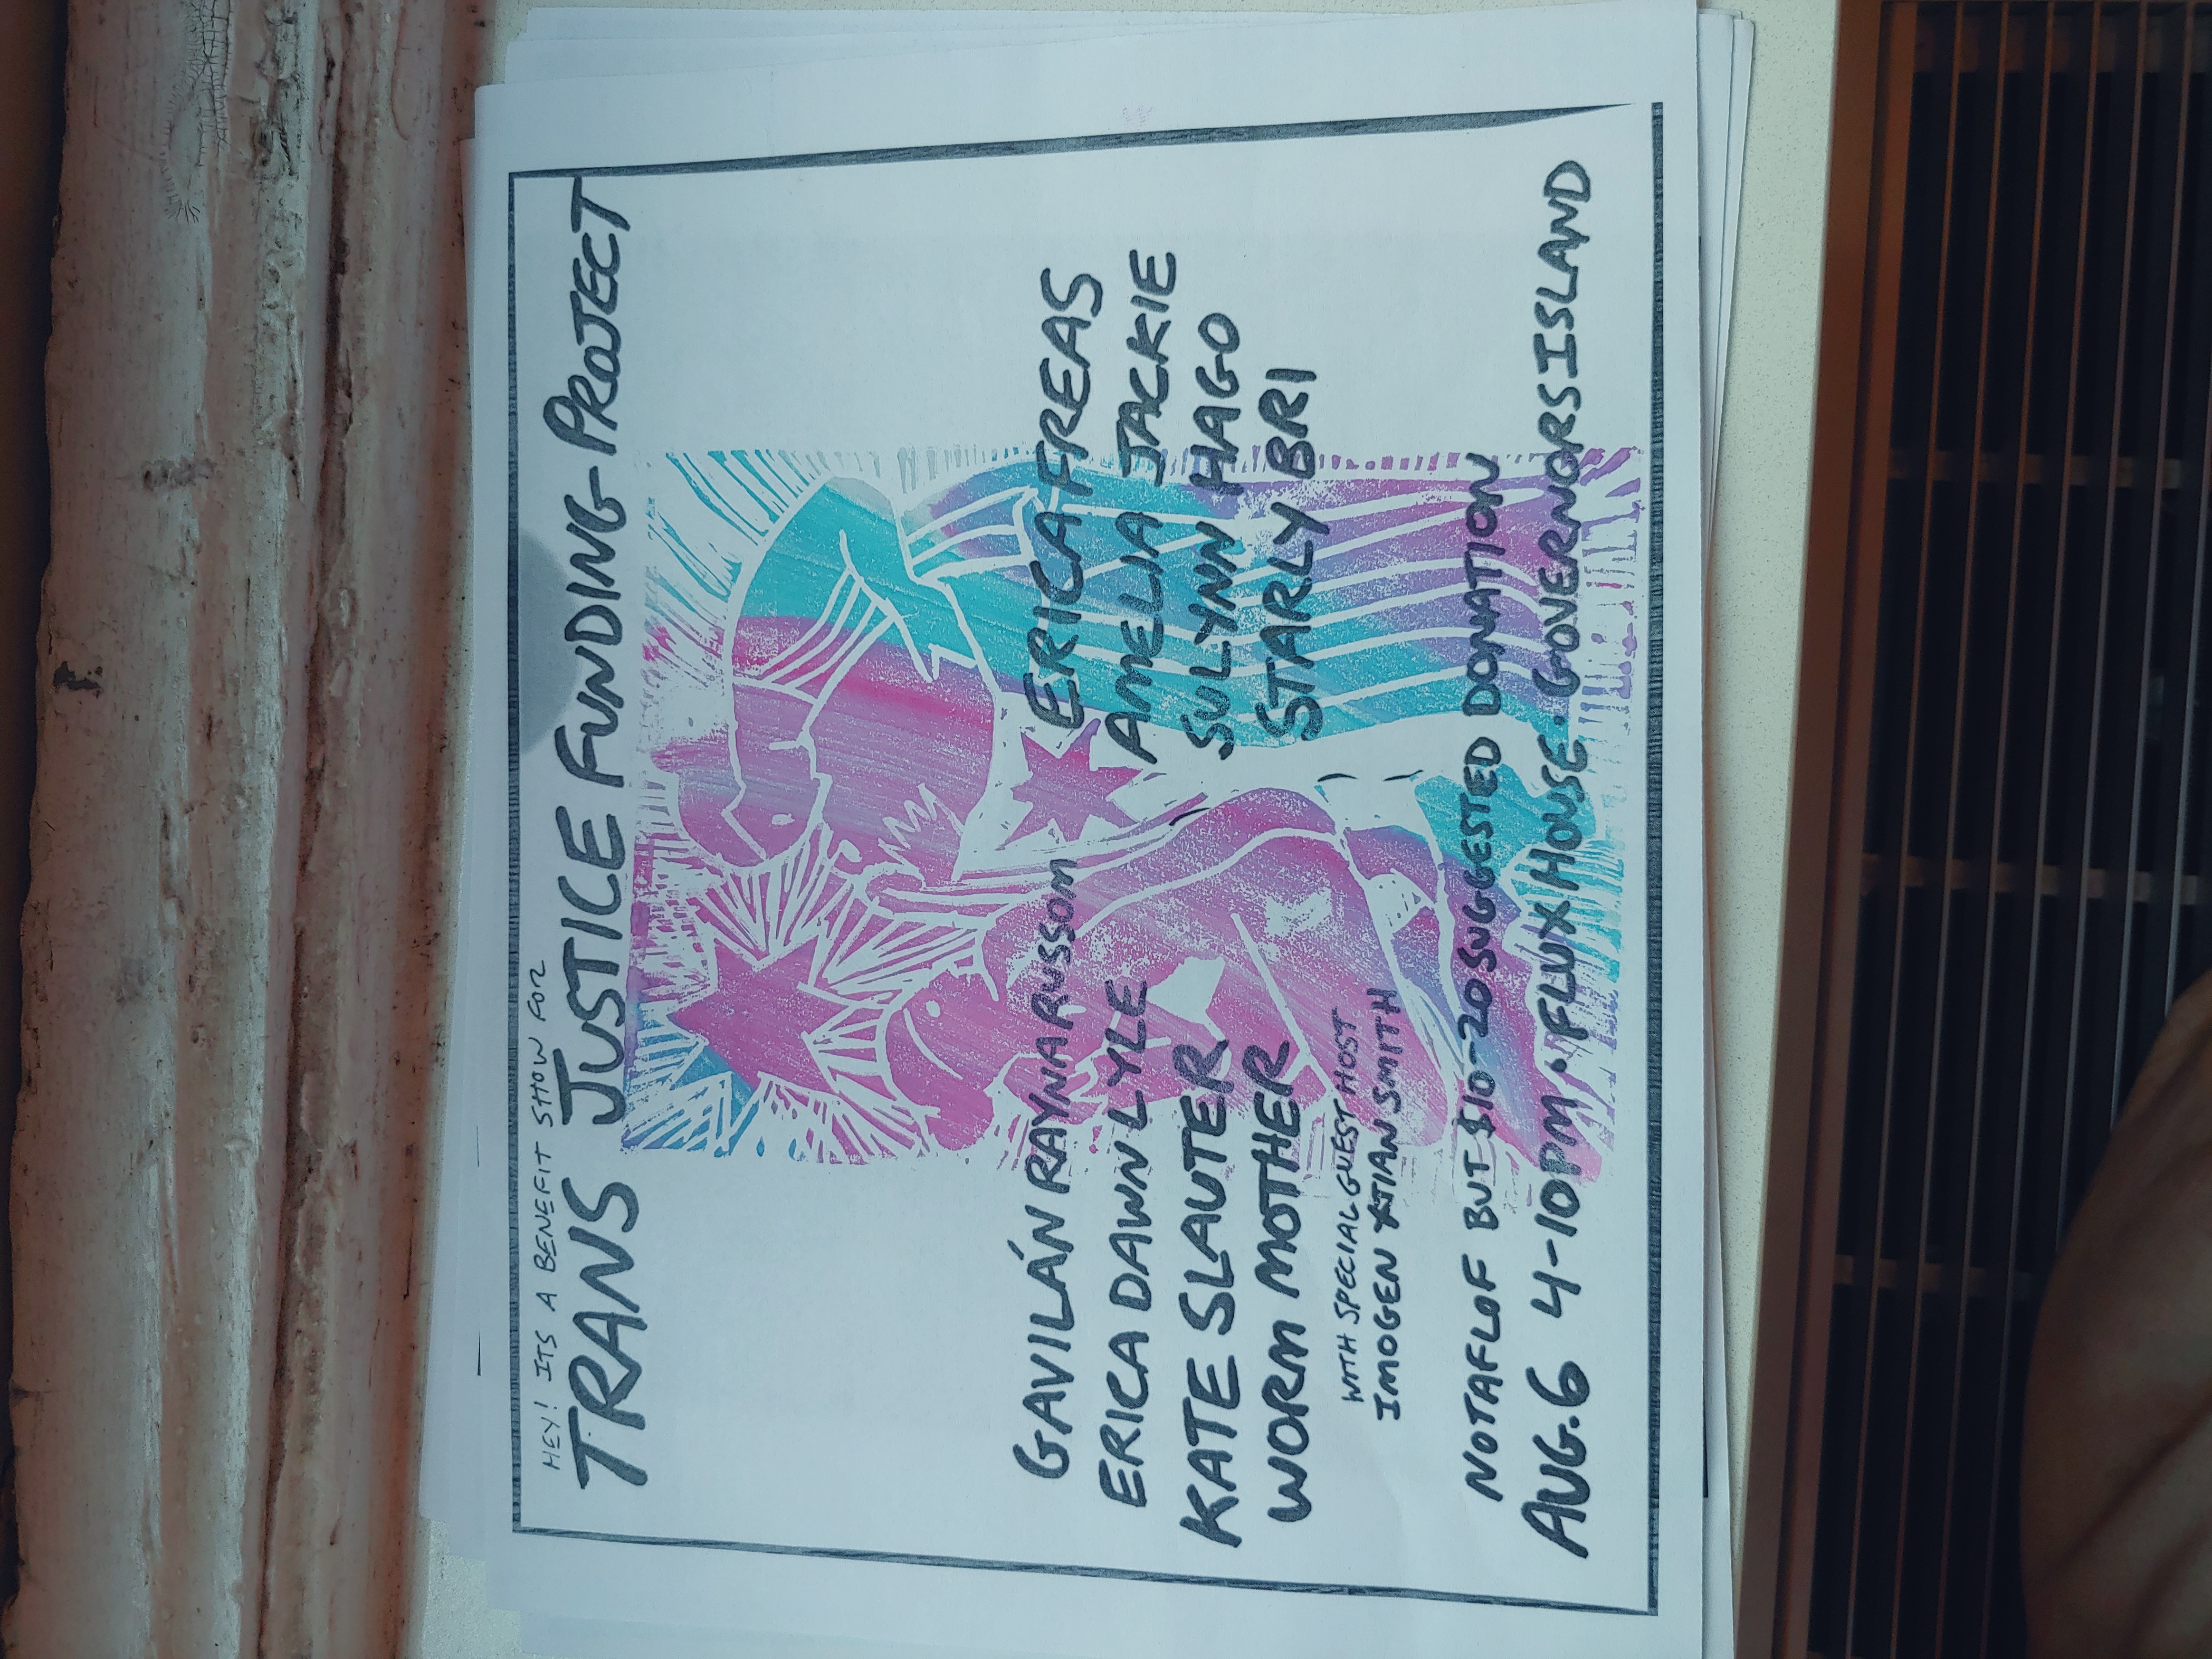 HEY! ITS A BENEFIT SHOW FOR
TRANS JUSTICE FUNDING PROJECT
GAVILÁN RAYNA RUSSOM
ERICA DAWN LYLE
KATE SLAUTER
WORM MOTHER
WITH SPECIAL GUEST HOST
IMOGEN XTIAN SMITH
ERICA FREAS
AMELIA JACKIE
SULYNN HAGO
STARLY BRI
NOTAFLOF BUT $10-20 SUGGESTED DONATION
AUG.6 4-10PM · FLUX HOUSE · GOVERNORS ISLAND